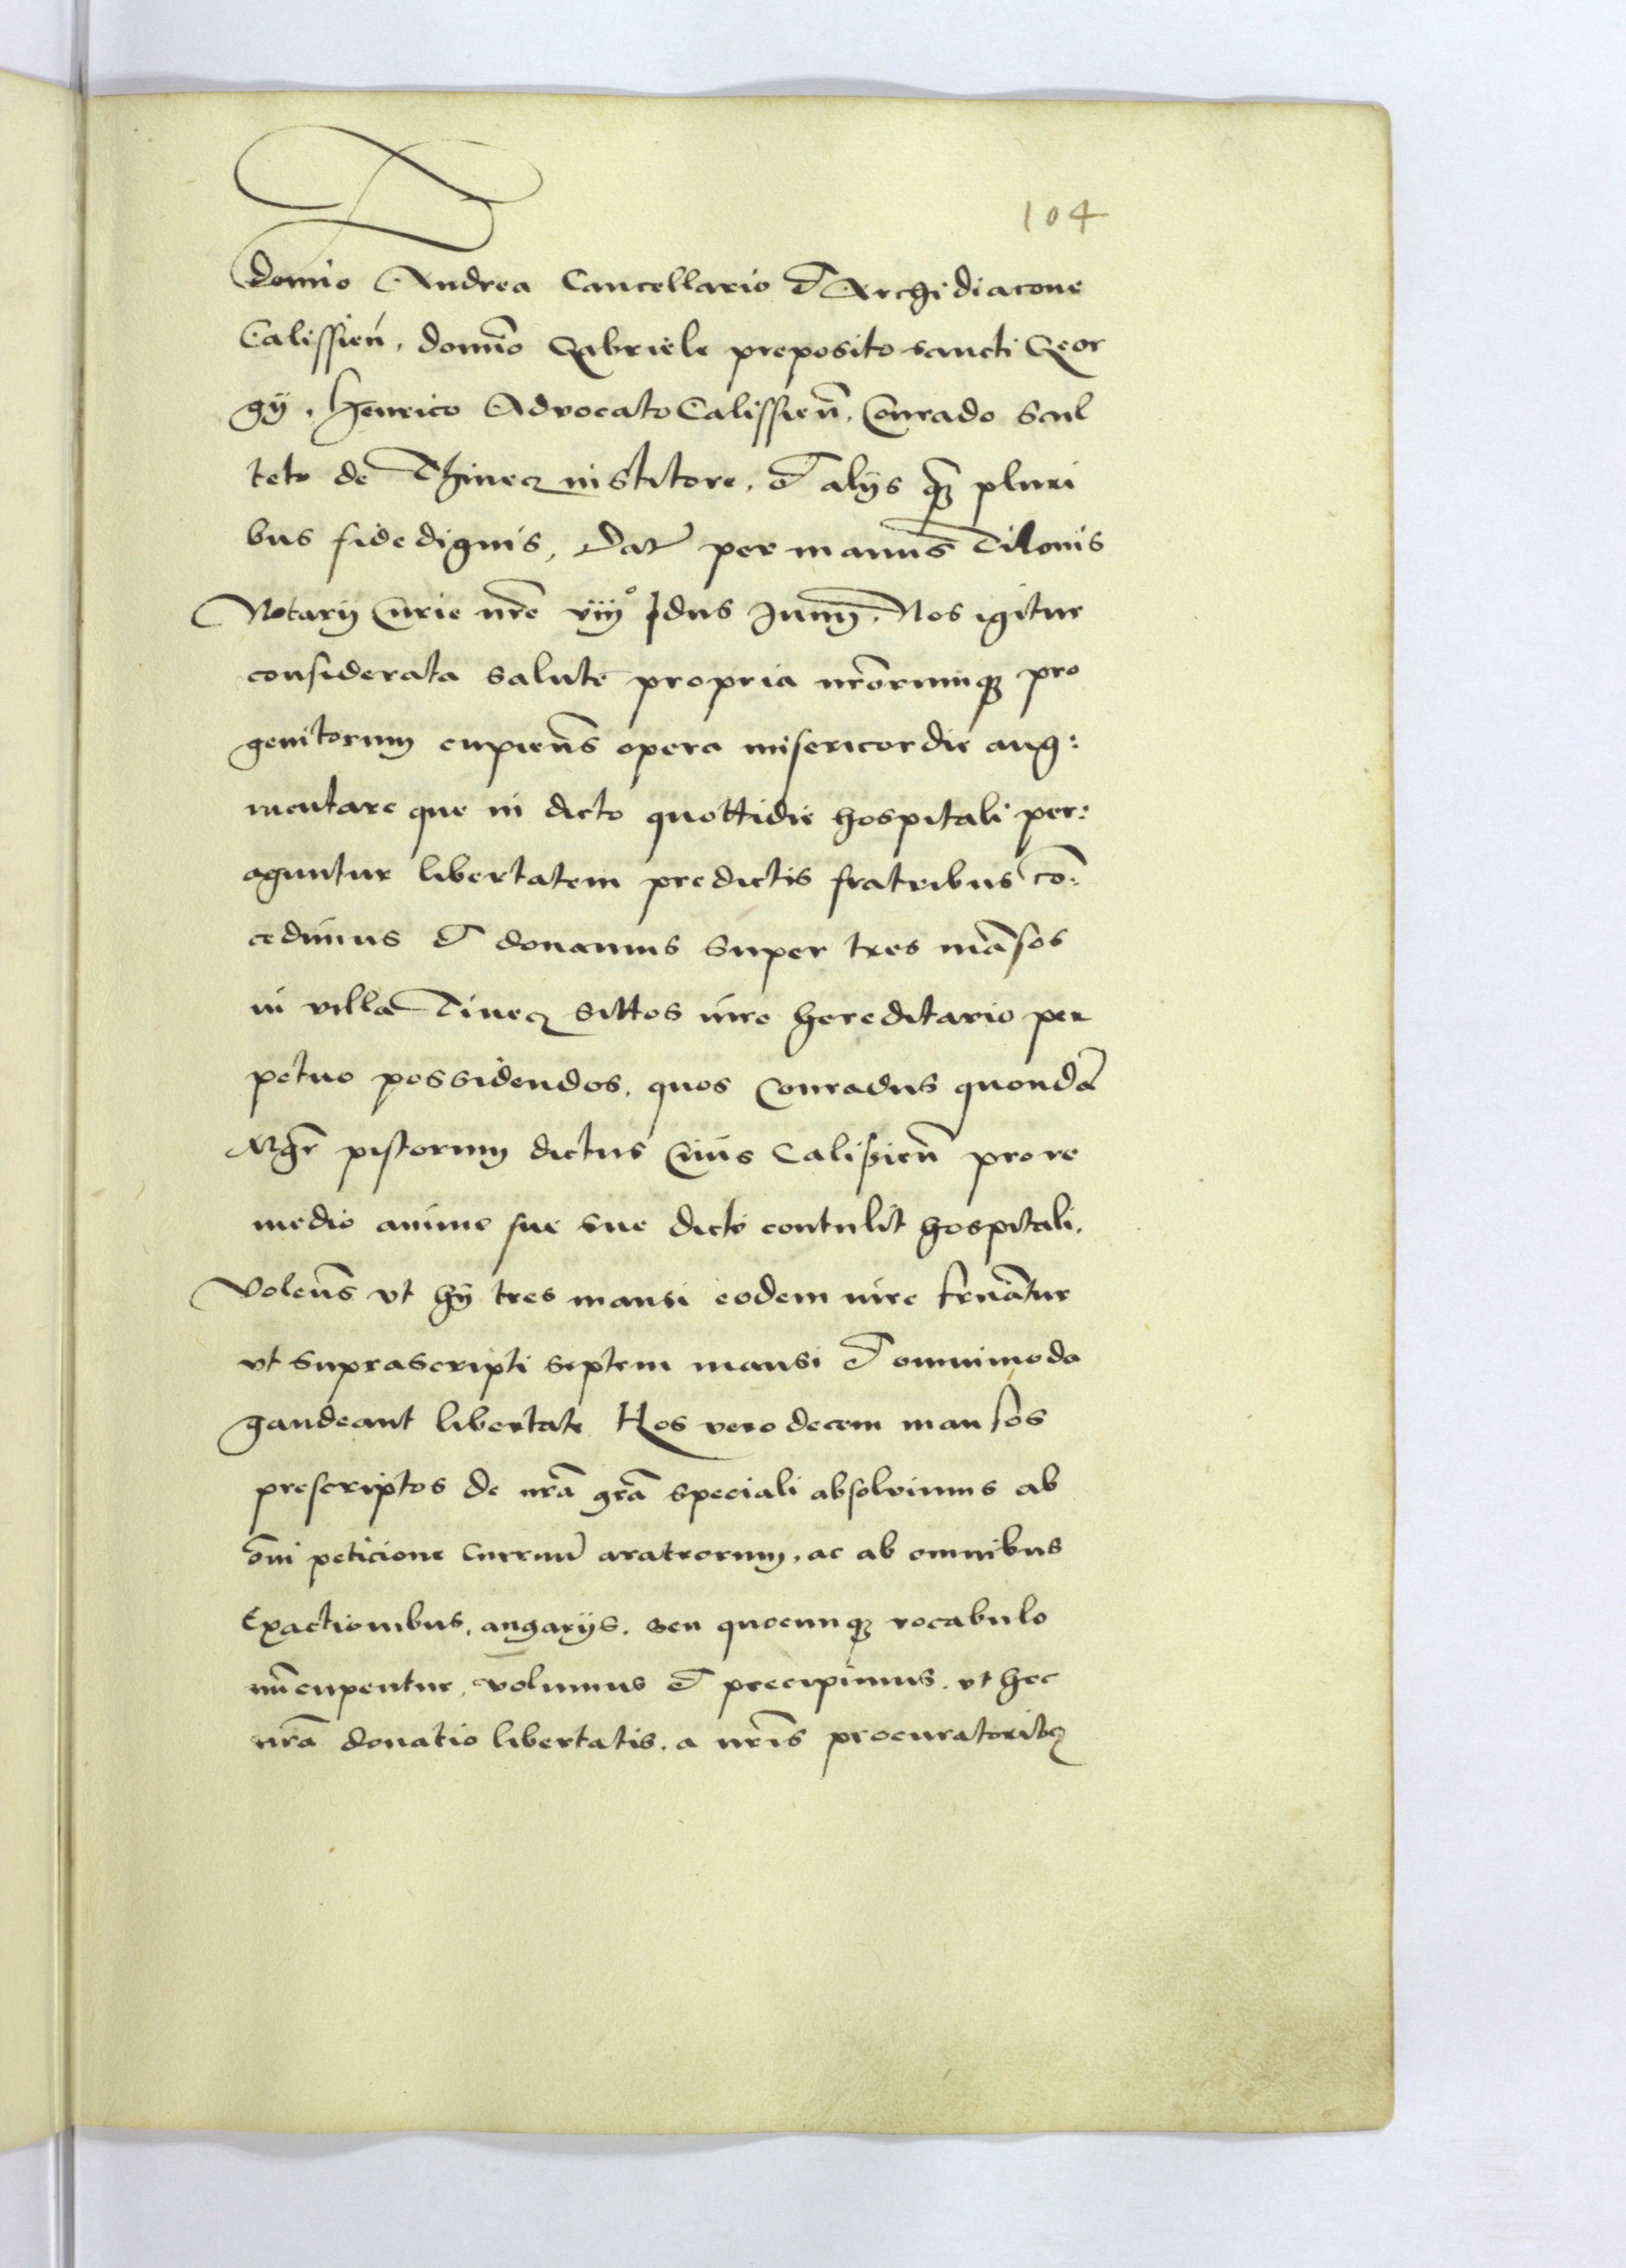 104
Domĩo Andrea Cancellario et Archidiacone
Calissien̄, domĩo Gabriele preposito sancti Geor
gÿ, Henrico Advocato Calissien̄, Conrado Scul
teto de Thinecz institore, et alÿs q̃ȝ pluri
bus fidedignis, Dat̃ per manus Tilonis
Notarÿ Curie nr̃e viijº Idus Junÿ. Nos igitur
considerata salute propria nr̃orumqȝ pro
genitorum cupien̄s opera misericordie aug:
mentare que in dicto quottidie hospitali per:
aguntur libertatem predictis fratribus cō:
cedimus et donamus super tres mãsos
in villa Tinecz sittos iure hereditario per
petuo possidendos, quos Conradus quondã
Mgr̃ pistorum dictus Civis Calisien̄ pro re
medio anime sue sue dicto contulit hospitali.
Volen̄s vt hÿ tres mansi eodem iure fruãtur
vt suprascripti septem mansi et omnimoda
gaudeant libertate Hos vero decem mansos
prescriptos de nr̃a gr̃a speciali absolvimus ab
õni peticione Curruũ aratrorum, ac ab omnibus
Exactionibus, angarÿs, seu quocunqȝ vocabulo
nũcupentur, volumus et precipimus, vt hec
nr̃a donatio libertatis, a nr̃is procuratoribꝰ